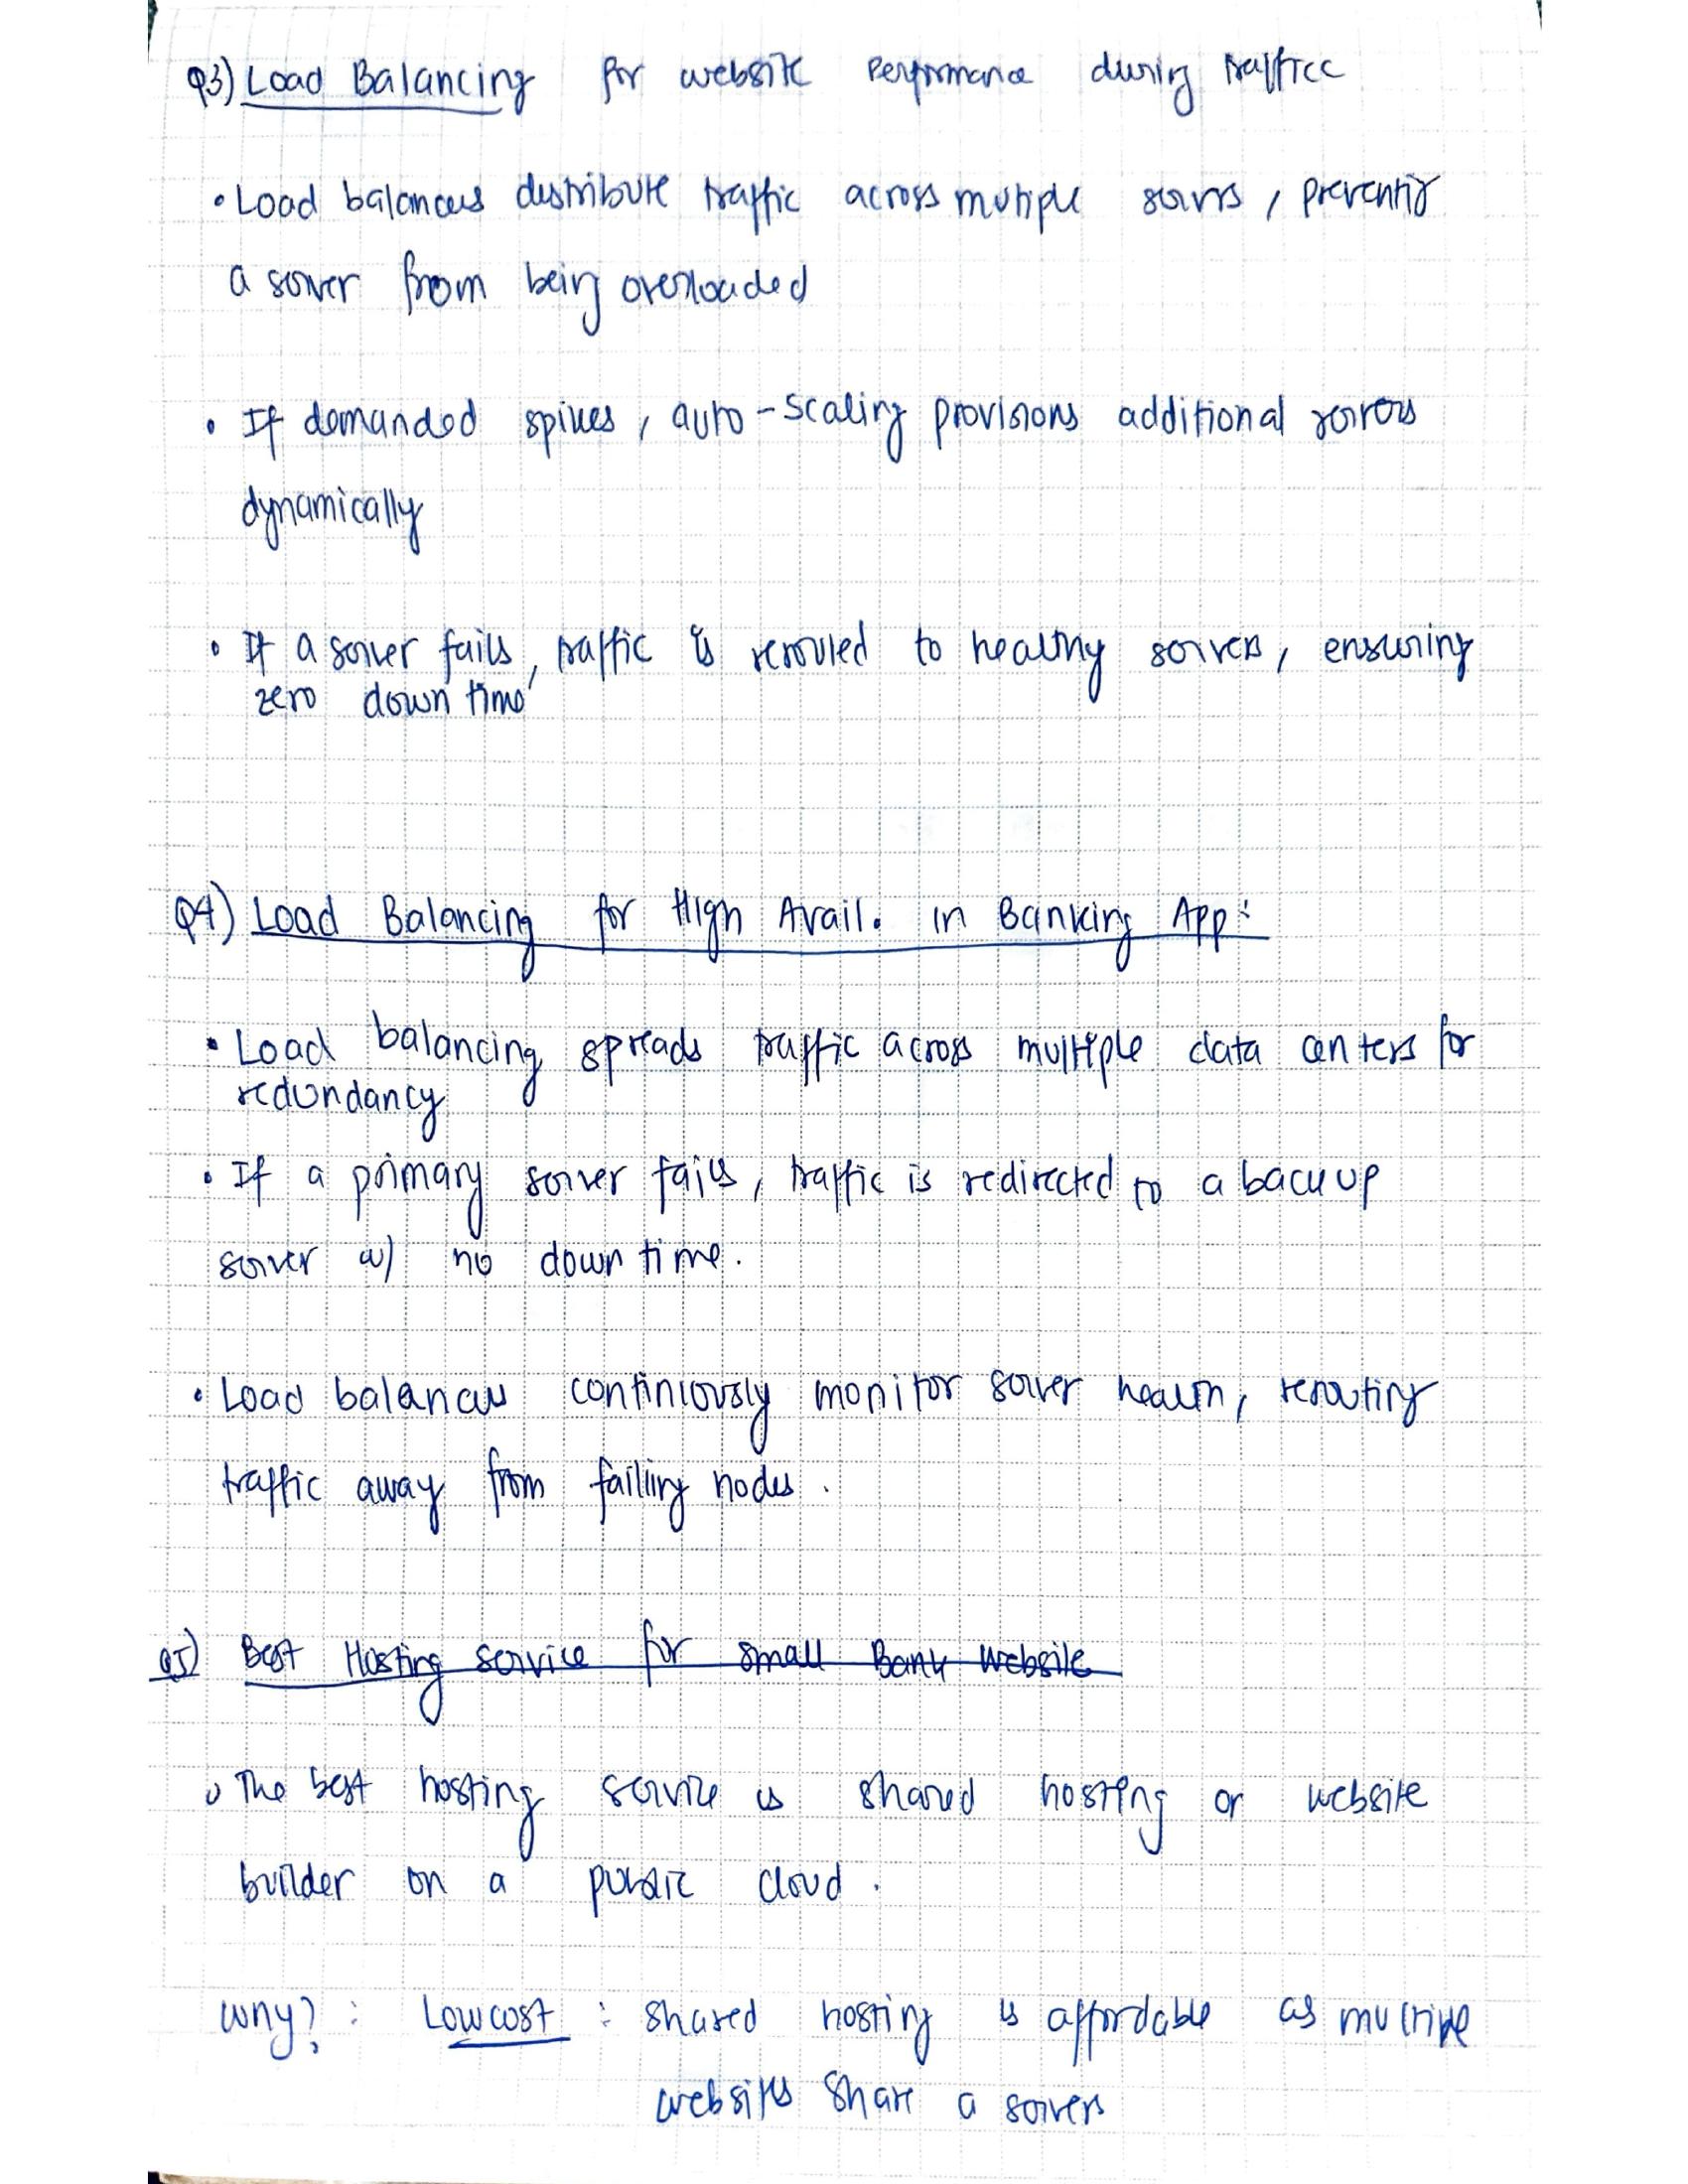 Q3) Load Balancing for website Performance during traffic
• Load balancers distribute traffic across multiple servers, preventing
a server from being overloaded
• If demanded spikes, auto-scaling provisions additional servers
dynamically
• If a server fails, traffic is rerouted to healthy servers, ensuring
zero down time
Q4) Load Balancing for High Avail. in Banking App:
• Load balancing spreads traffic across multiple data centers for
redundancy
• If a primary server fails, traffic is redirected to a backup
server w/ no down time.
• Load balancers continiously monitor server health, rerouting
traffic away from failing nodes.
Q5) Best Hosting service for small Bank Website
• The best hosting service is shared hosting or website
builder on a public cloud.
Why? : Low cost : shared hosting is affordable as multiple
websites share a servers